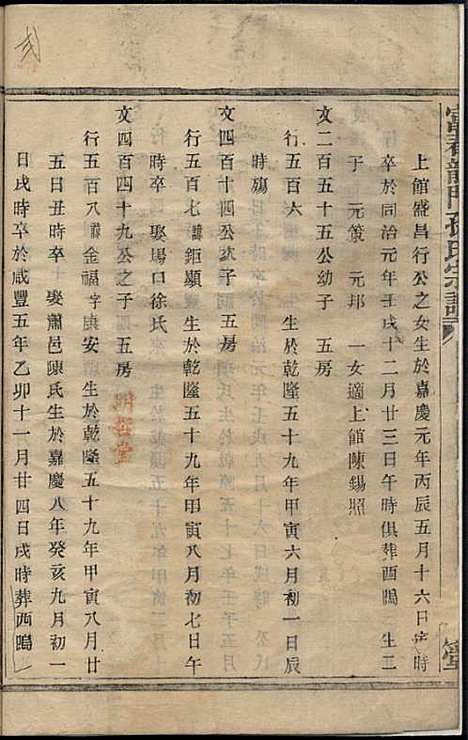 富春龍門孫氏宗譜
上館盛昌行公之女生於嘉慶元年丙辰五月十六日 時
卒於同治元年壬戌十二月廿三日午時俱葬酉鳴 生二
于 元策 元邦 一女適上館陳錫照
文二百五十五公幼子 五房
行五百六 生於乾隆五十九年甲寅六月初一日辰
時殤
文四百十四公次子 五房
行五百七諱鉅顯 生於乾隆五十九年甲寅八月初七日午
時卒 娶場口徐氏
文四百四十九公之子 五房
行五百八諱金福字康安 生於乾隆五十九年甲寅八月廿
五日丑時卒 娶蕭邑陳氏生於嘉慶八年癸亥九月初一
日戌時卒於咸豐五年乙卯十一月廿四日戌時葬西鳴